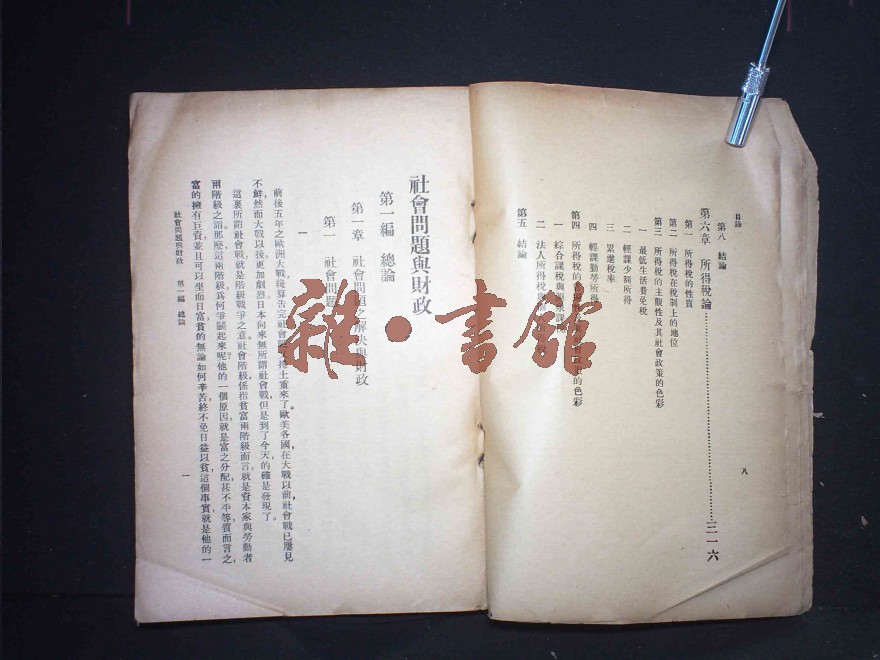 目錄
第八 結論
第六章 所得稅論……三一六
第一 所得稅的性質
第二 所得稅在稅制上的地位
第三 所得稅的主觀性及其社會政策的色彩
一 最低生活費免稅
二 輕課少額所得
三 累進稅率
四 輕課勤勞所得
第四 所得稅的 的色彩
一 綜合課稅與
二 法人所得稅與
第五 結論
八
社會問題與財政
第一編 總論
第一章 社會問題之解決與財政
第一 社會問題
一
前後五年之歐洲大戰,總算告完社會戰 捲土重來了。歐美各國,在大戰以前,社會戰已屢見
不鮮,然而大戰以後,更加劇烈。日本向來無所謂社會戰,但是到了今天,的確是發現了。
這裏所謂社會戰,就是階級戰爭之意。社會階級,係指貧富兩階級而言,就是資本家與勞動者
兩階級之謂。那麼這兩階級,爲何爭鬭起來呢?他的一個原因,就是富之分配,甚不平等,質而言之,
富的擁有巨資,並且可以坐而日富,貧的無論如何辛苦,終不免日益以貧,這個事實,就是他的一
社會問題與財政 第一編 總論
一
雜·書館